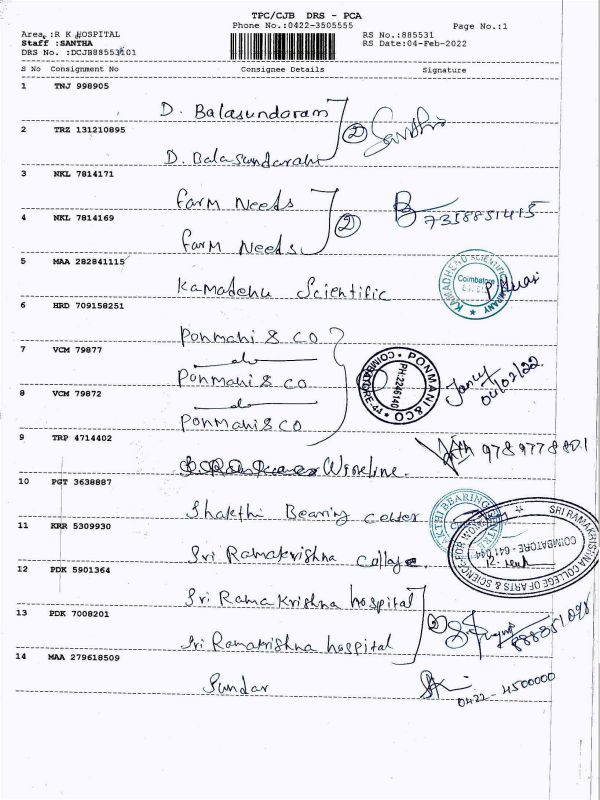 TPC/CJB DRS - PCA
Phone No.:0422-3505555
Page No.:1
Area :R K HOSPITAL
RS No.:885531
Staff :SANTHA
RS Date:04-Feb-2022
DRS No. :DCJB885531101
S No Consignment No Consignee Details Signature
1 TNJ 998905
D. Balasundaram
2 TRZ 131210895
2
D. Balasundaram
3 NKL 7814171
Farm Needs
7358851415
4 NKL 7814169
2
Farm Needs
5 MAA 282841115
Kamadenu Scientific
KAMADHENU SCIENTIFIC COMPANY
Coimbatore
6 HRD 709158251
Ponmani & CO
7 VCM 79877
do
Ponmani & CO
PONMANI & CO
PH:2246140
COIMBATORE-44
04/02/22
8 VCM 79872
do
Ponmani & CO
9 TRP 4714402
9789778801
Wireline.
10 PGT 3638887
Shakthi Bearing center
SAKTHI BEARING CENTRE
11 KRR 5309930
Sri Ramakrishna College
SRI RAMAKRISHNA COLLEGE OF ARTS & SCIENCE FOR WOMEN
COIMBATORE - 641 044
12 PDK 5901364
Sri Ramakrishna hospital
13 PDK 7008201
2
Sri Ramakrishna hospital
14 MAA 279618509
Sundar
0422-4500000